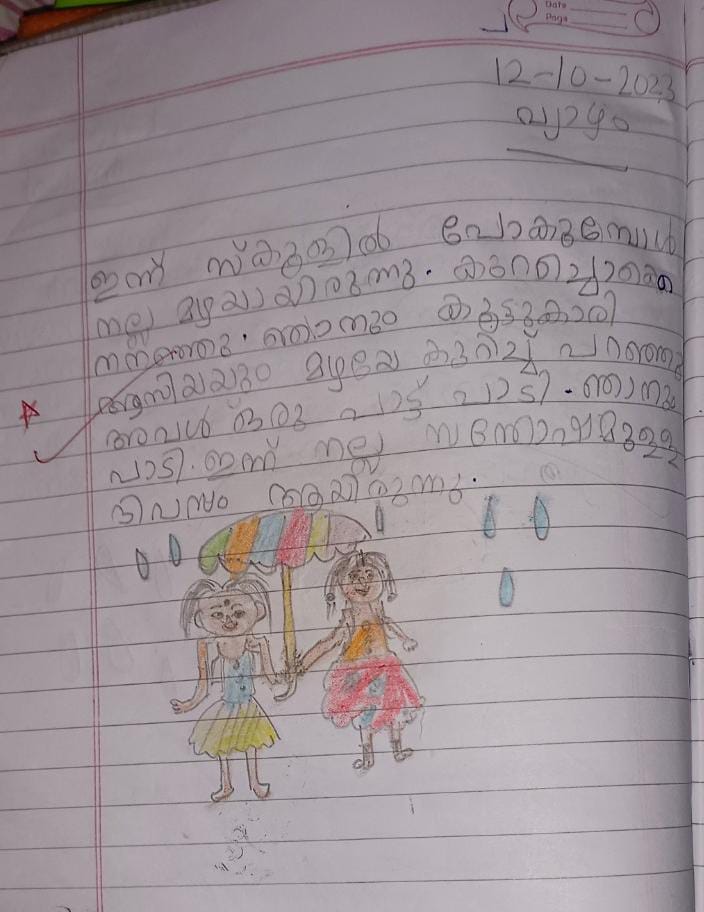 Date
Page
12-10-2023
വ്യാഴം
ഇന്ന് സ്കൂളിൽ പോകുമ്പോൾ
നല്ല മഴയായിരുന്നു. കുറച്ചൊക്കെ
നനഞ്ഞു. ഞാനും കൂട്ടുകാരി
ആസിയയും മഴയെ കുറിച്ച് പറഞ്ഞു
അവൾ ഒരു പാട്ട് പാടി. ഞാനും
പാടി. ഇന്ന് നല്ല സന്തോഷമുള്ള
ദിവസം ആയിരുന്നു.